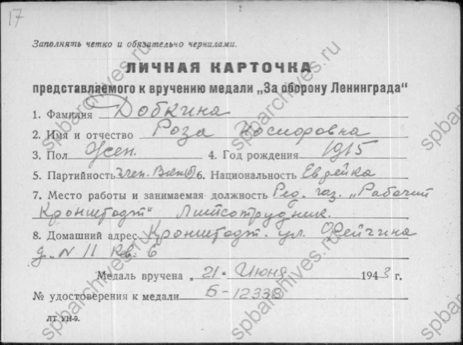 17
Заполнять четко и обязательно чернилами.
ЛИЧНАЯ КАРТОЧКА
представляемого к вручению медали „За оборону Ленинграда“
1. Фамилия Добкина
2. Имя и отчество Роза Иосифовна
3. Пол Жен. 4. Год рождения 1915
5. Партийность член ВКП(б) 6. Национальность Еврейка
7. Место работы и занимаемая должность Ред. газ. „Рабочий
Кронштадт“ Литсотрудник.
8. Домашний адрес Кронштадт. ул.
д. N 11 кв. 6
Медаль вручена „21“ Июня 1943 г.
№ удостоверения к медали Б-12338
ЛТ
spbarchives.ru